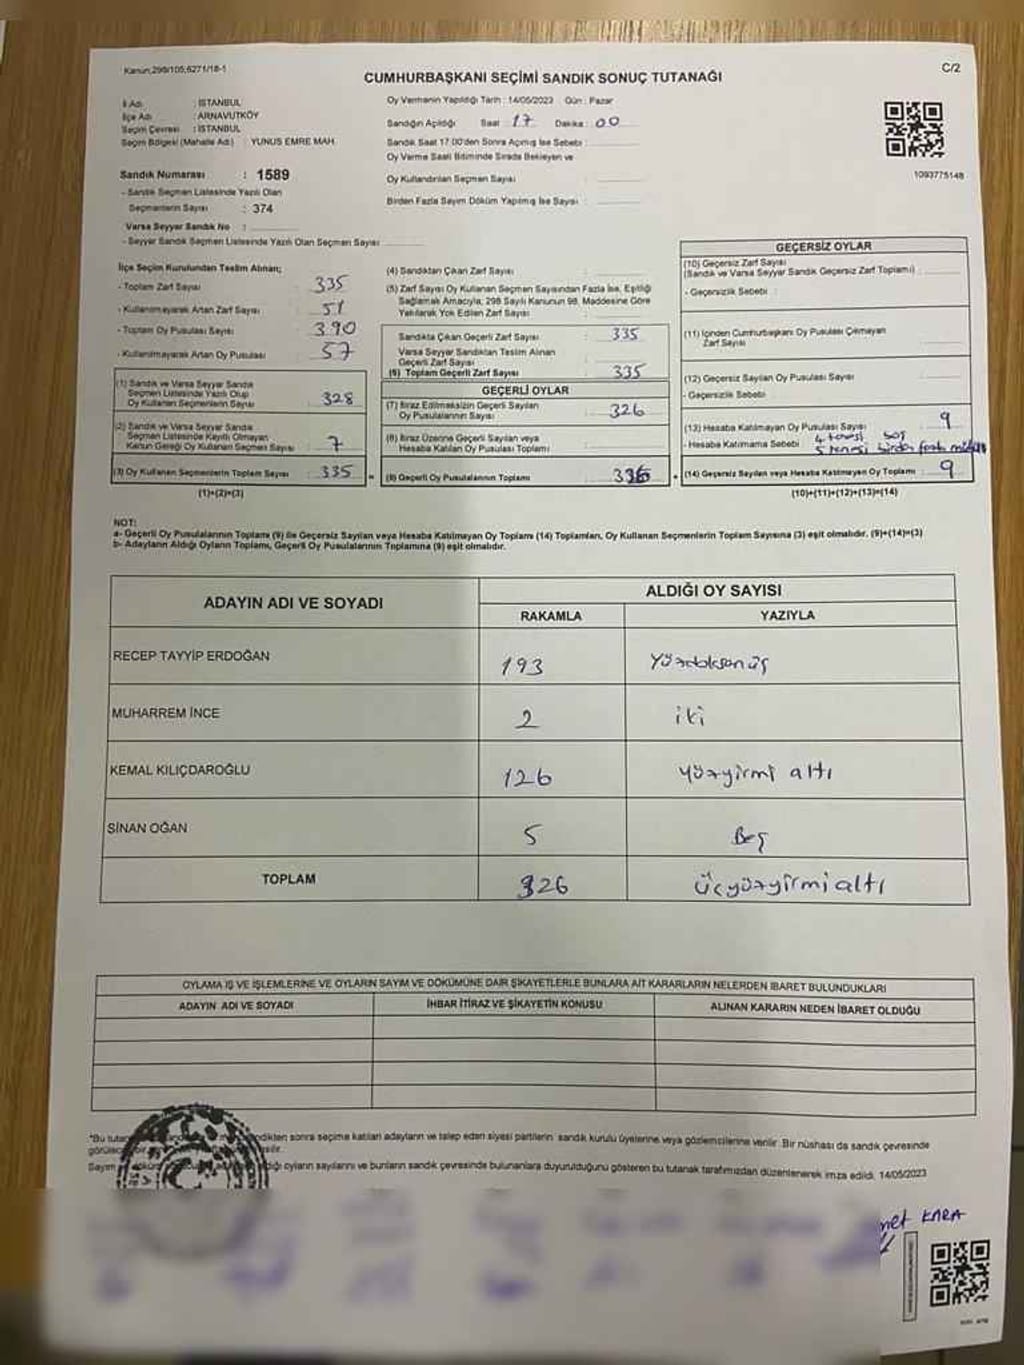 Kanun;298/105;6271/18-1
C/2
CUMHURBAŞKANI SEÇİMİ SANDIK SONUÇ TUTANAĞI
İl Adı : İSTANBUL
İlçe Adı : ARNAVUTKÖY
Seçim Çevresi : İSTANBUL
Seçim Bölgesi (Mahalle Adı) : YUNUS EMRE MAH.
Sandık Numarası : 1589
- Sandık Seçmen Listesinde Yazılı Olan
Seçmenlerin Sayısı : 374
Varsa Seyyar Sandık No :
- Seyyar Sandık Seçmen Listesinde Yazılı Olan Seçmen Sayısı
Oy Vermenin Yapıldığı Tarih : 14/05/2023 Gün : Pazar
Sandığın Açıldığı Saat : 17 Dakika : 00
Sandık Saat 17.00'den Sonra Açılmış İse Sebebi :
Oy Verme Saati Bitiminde Sırada Bekleyen ve
Oy Kullandırılan Seçmen Sayısı :
Birden Fazla Sayım Döküm Yapılmış İse Sayısı :
1093775148
İlçe Seçim Kurulundan Teslim Alınan;
- Toplam Zarf Sayısı : 335
- Kullanılmayarak Artan Zarf Sayısı : 51
- Toplam Oy Pusulası Sayısı : 390
- Kullanılmayarak Artan Oy Pusulası : 57
(1) Sandık ve Varsa Seyyar Sandık
Seçmen Listesinde Yazılı Olup
Oy Kullanan Seçmenlerin Sayısı : 328
(2) Sandık ve Varsa Seyyar Sandık
Seçmen Listesinde Kayıtlı Olmayan
Kanun Gereği Oy Kullanan Seçmen Sayısı : 7
(3) Oy Kullanan Seçmenlerin Toplam Sayısı : 335
(1)+(2)=(3)
(4) Sandıktan Çıkan Zarf Sayısı :
(5) Zarf Sayısı Oy Kullanan Seçmen Sayısından Fazla İse, Eşitliği
Sağlamak Amacıyla, 298 Sayılı Kanunun 98. Maddesine Göre
Yakılarak Yok Edilen Zarf Sayısı :
Sandıkta Çıkan Geçerli Zarf Sayısı : 335
Varsa Seyyar Sandıktan Teslim Alınan
Geçerli Zarf Sayısı :
(6) Toplam Geçerli Zarf Sayısı : 335
GEÇERLİ OYLAR
(7) İtiraz Edilmeksizin Geçerli Sayılan
Oy Pusulalarının Sayısı : 326
(8) İtiraz Üzerine Geçerli Sayılan veya
Hesaba Katılan Oy Pusulası Toplamı :
(9) Geçerli Oy Pusulalarının Toplamı :
GEÇERSİZ OYLAR
(10) Geçersiz Zarf Sayısı
(Sandık ve Varsa Seyyar Sandık Geçersiz Zarf Toplamı) :
- Geçersizlik Sebebi :
(11) İçinden Cumhurbaşkanı Oy Pusulası Çıkmayan
Zarf Sayısı :
(12) Geçersiz Sayılan Oy Pusulası Sayısı :
- Geçersizlik Sebebi :
(13) Hesaba Katılmayan Oy Pusulası Sayısı : 9
- Hesaba Katılmama Sebebi : 4 tanesi boş
5 tanesi birden fazla
(14) Geçersiz Sayılan veya Hesaba Katılmayan Oy Toplamı : 9
(10)+(11)+(12)+(13)=(14)
NOT:
a- Geçerli Oy Pusulalarının Toplamı (9) ile Geçersiz Sayılan veya Hesaba Katılmayan Oy Toplamı (14) Toplamları, Oy Kullanan Seçmenlerin Toplam Sayısına (3) eşit olmalıdır. (9)+(14)=(3)
b- Adayların Aldığı Oyların Toplamı, Geçerli Oy Pusulalarının Toplamına (9) eşit olmalıdır.
ADAYIN ADI VE SOYADI
ALDIĞI OY SAYISI
RAKAMLA YAZIYLA
RECEP TAYYİP ERDOĞAN 193 Yüzdoksanüç
MUHARREM İNCE 2 iki
KEMAL KILIÇDAROĞLU 126 yüzyirmi altı
SİNAN OĞAN 5 Beş
TOPLAM 326 Üçyüzyirmialtı
OYLAMA İŞ VE İŞLEMLERİNE VE OYLARIN SAYIM VE DÖKÜMÜNE DAİR ŞİKAYETLERLE BUNLARA AİT KARARLARIN NELERDEN İBARET BULUNDUKLARI
ADAYIN ADI VE SOYADI İHBAR İTİRAZ VE ŞİKAYETİN KONUSU ALINAN KARARIN NEDEN İBARET OLDUĞU
*Bu sonra seçime katılan adayların ve talep eden siyasi partilerin sandık kurulu üyelerine veya gözlemcilerine verilir. Bir nüshası da sandık çevresinde
Sayım oyların sayılarını ve bunların sandık çevresinde bulunanlara duyurulduğunu gösteren bu tutanak tarafımızdan düzenlenerek imza edildi. 14/05/2023
KARA